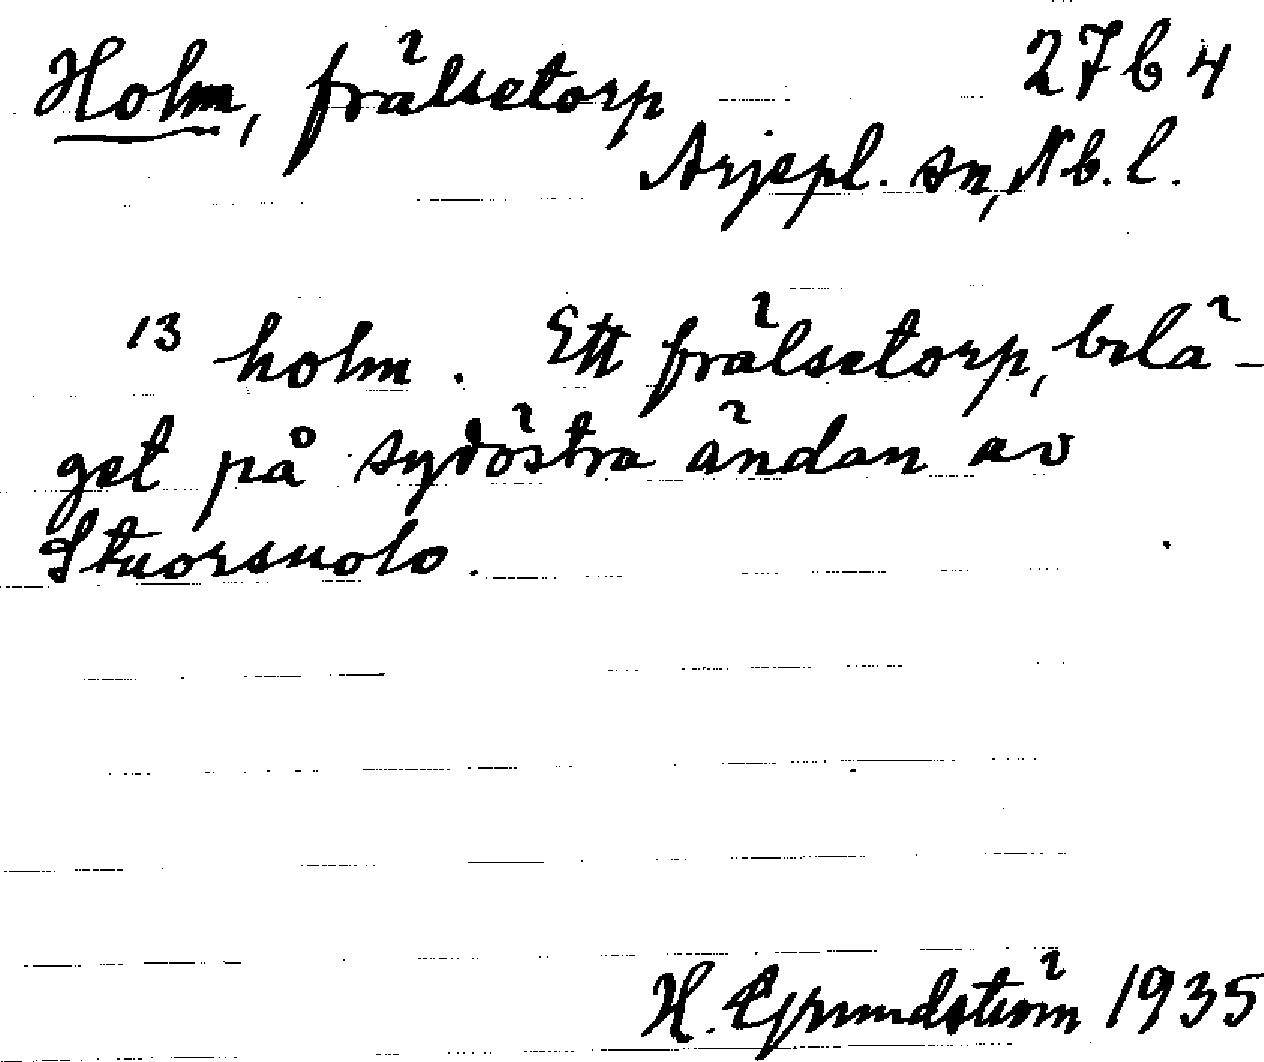 Holm, frälsetorp 27b4
Arjepl. sn, Nb. l.
13 holm. Ett frälsetorp, belä-
get på sydöstra ändan av
Stuorsuolo.
H. Grundström 1935